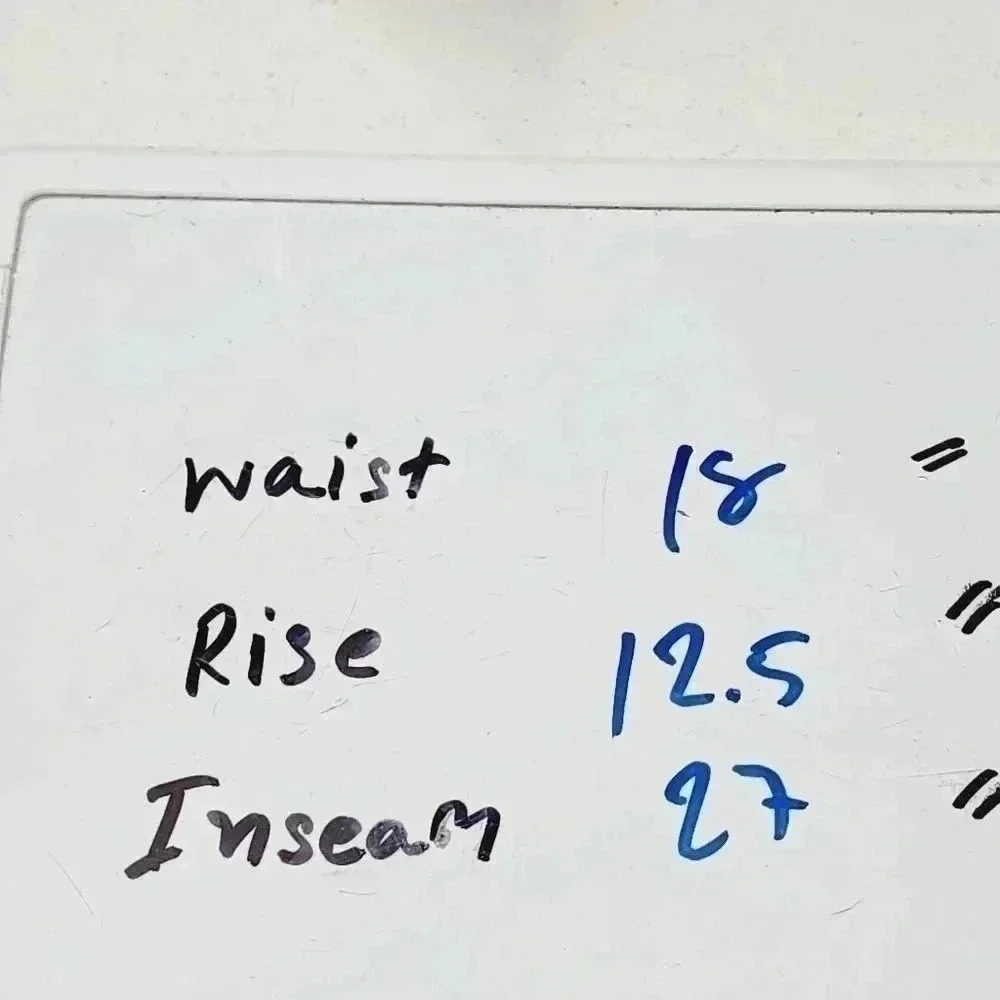 waist 18 "
Rise 12.5 "
Inseam 27 "